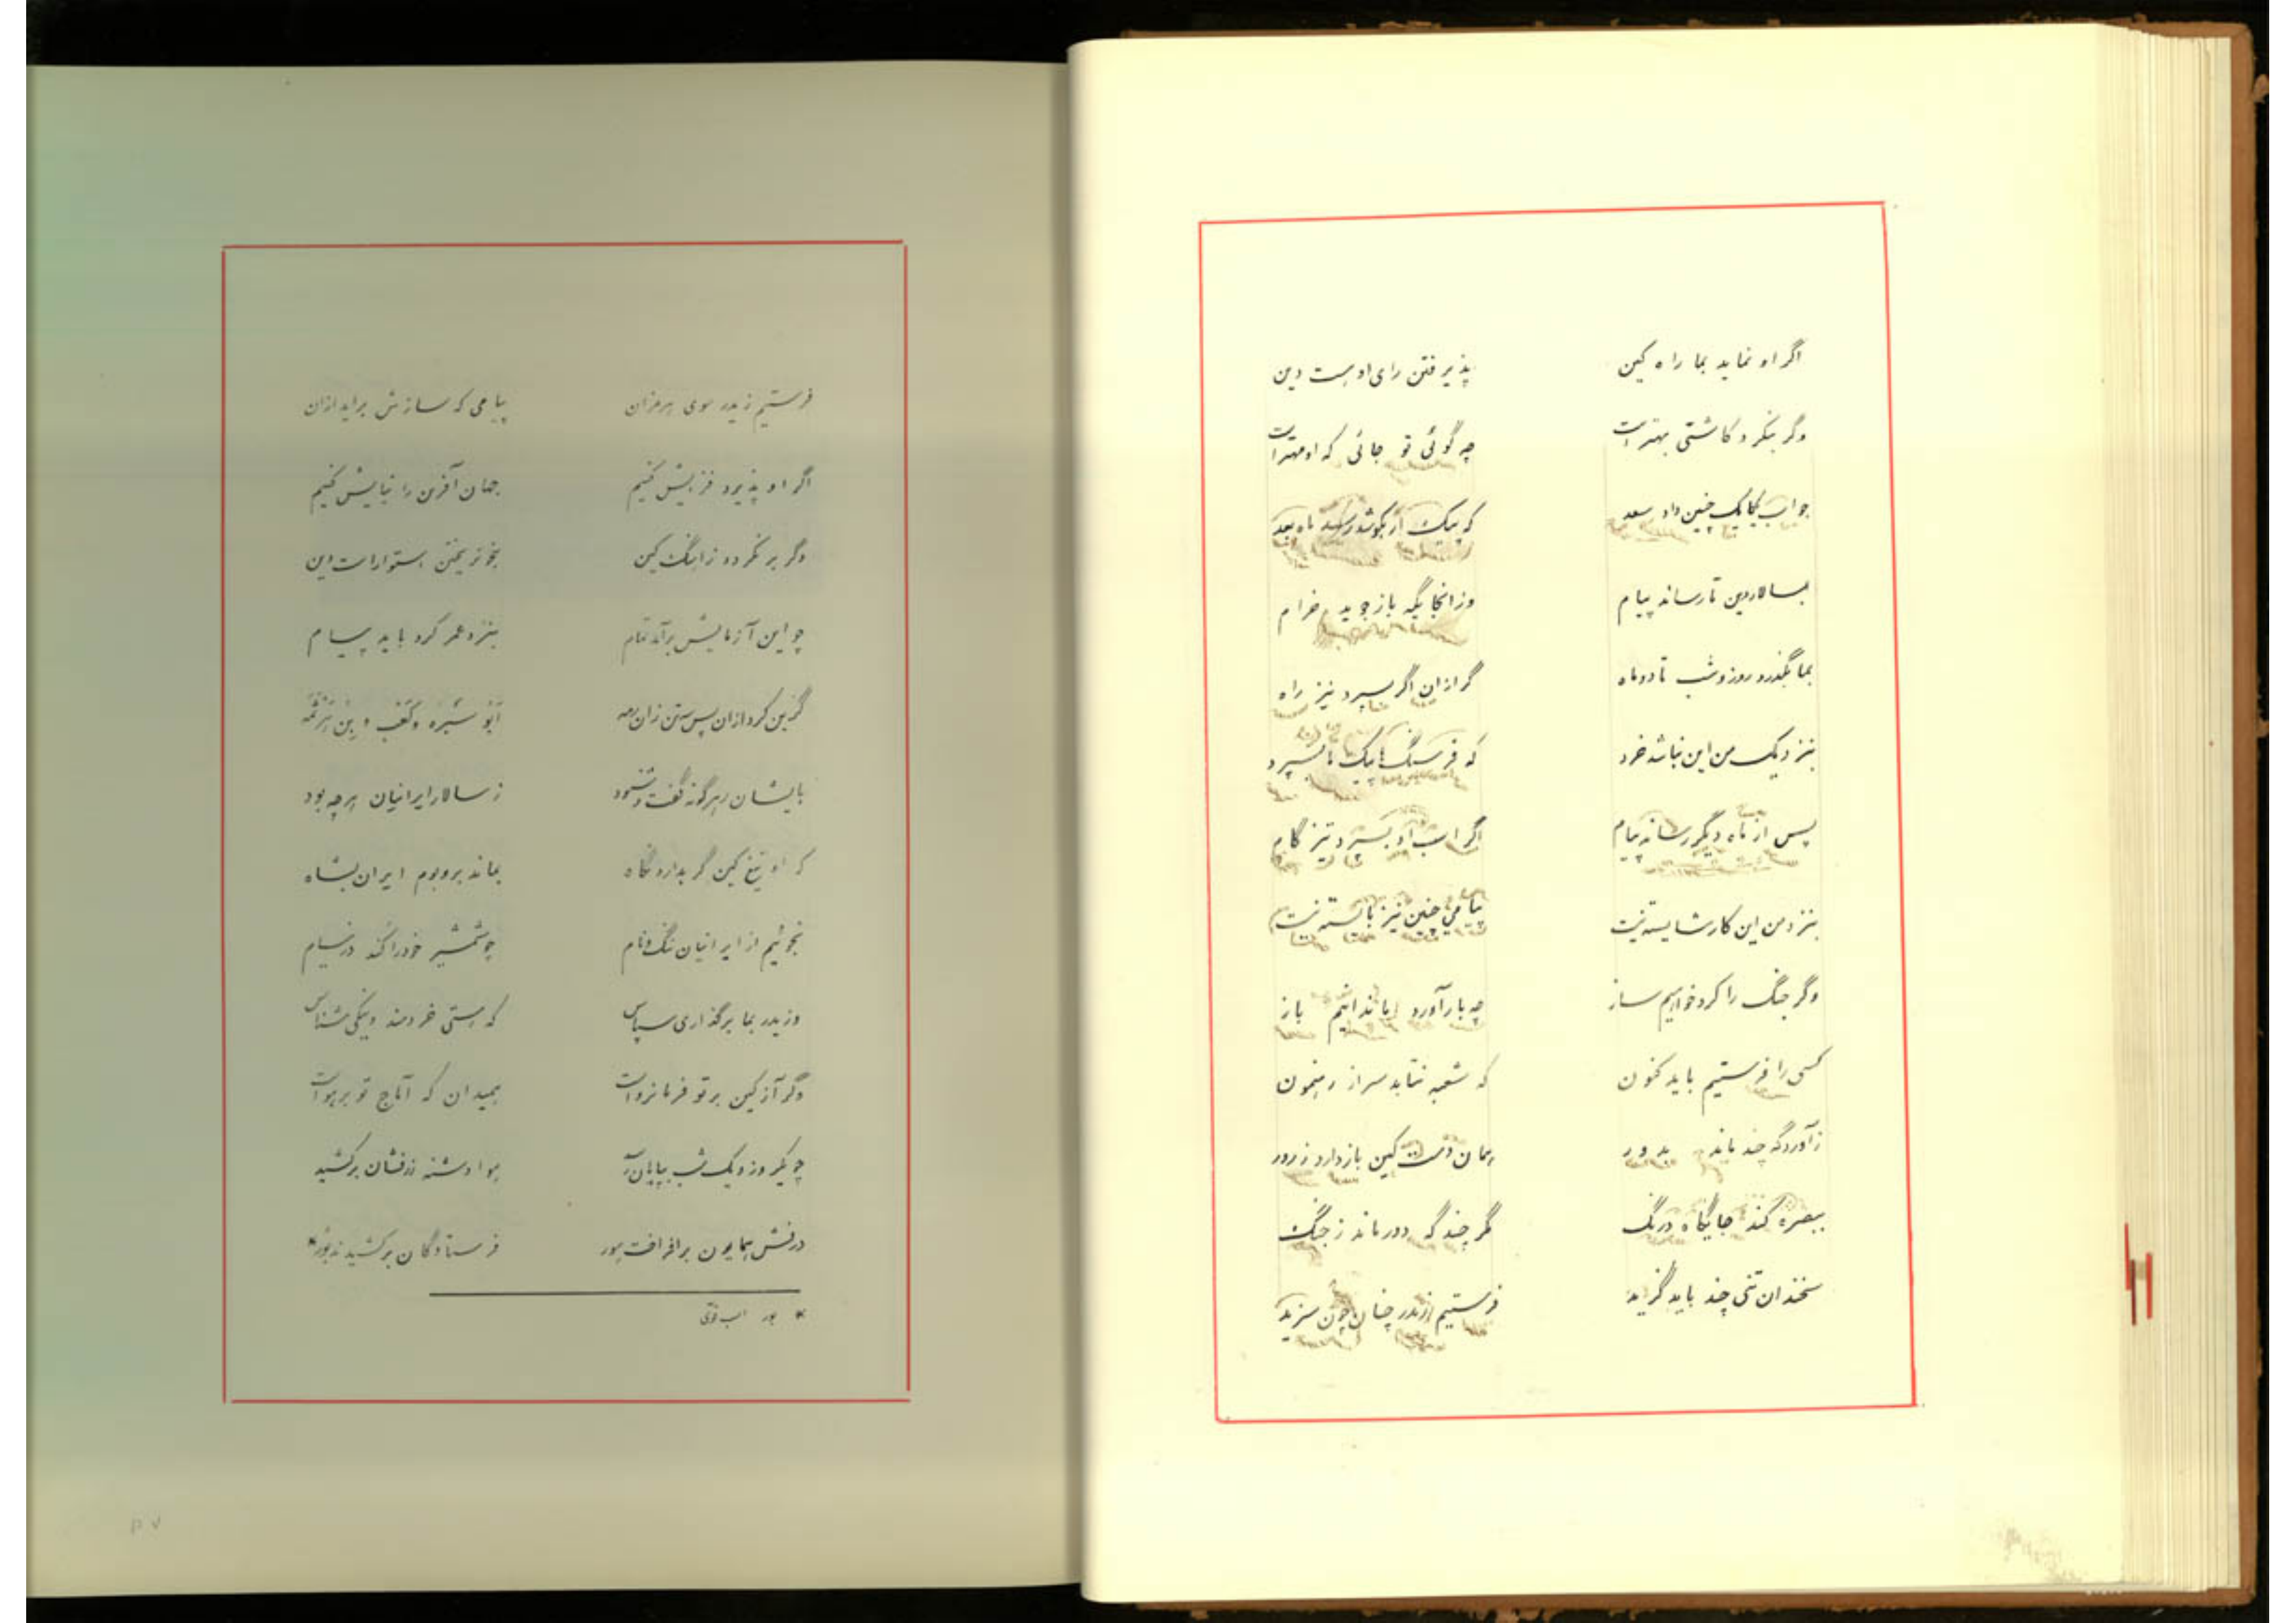 اگر او نماید بما راه کین پذیرفتن رای او هست دین
وگر بنگرد کاشتی بهتر است چه گوئی تو جائی که او مهتر است
جواب یکایک چنین داد سعد که پیک ار بکوشد رسد ماه بعد
بسالار دین تا رساند پیام وزانجایگه باز جوید خرام
بما بگذرد روز و شب تا دو ماه گرازان اگر بسپرد نیز راه
بنزدیک من این نباشد خرد که فرسنگ پیک ما بسپرد
پس از ماه دیگر رساند پیام اگر اسب او بسپرد تیز گام
بنزد من این کار شایسته نیست پیامی چنین نیز بایسته نیست
وگر جنگ را کرد خواهیم ساز چه بار آورد ندانیم باز
کسی را فرستیم باید کنون که شعبه نتابد سر از رهنمون
ز آوردگه چند ماند بدور همان دست کین باز دارد ز زور
ببصره کند جایگاه درنگ مگر چند گه دور ماند ز جنگ
سخندان تنی چند باید گزید فرستیم ازیدر چنان چون سزید
فرستیم زیدر سوی هرمزان پیامی که سازش برآید ازان
اگر او پذیرد فزایش کنیم جهان آفرین را نیایش کنیم
وگر بر نگردد ز آهنگ کین بخونریختن استوار است دین
چو این آزمایش برآمد تمام بنزد عمر کرد باید پیام
گزین کرد ازان پس سه تن زان رمه ابو شبره و کعب و بن هرثمه
بایشان ز هر گونه گفت و شنود ز سالار ایرانیان هر چه بود
که او تیغ کین گر بدارد نگاه بماند بر و بوم ایران بشاه
نجوئیم از ایرانیان ننگ و نام چو شمشیر خود را کند در نیام
وزیدر بما بر گذاری سپاس که هستی خردمند و نیکی شناس
وگر آز کین بر تو فرمانرواست همیدان که آماج تو بر هواست
چو یکروز و یک شب بپایان رسید هوا دشنه زرفشان برکشید
درفش همایون برافراخت هور فرستادگان برکشیدند بور*
* بور اسب